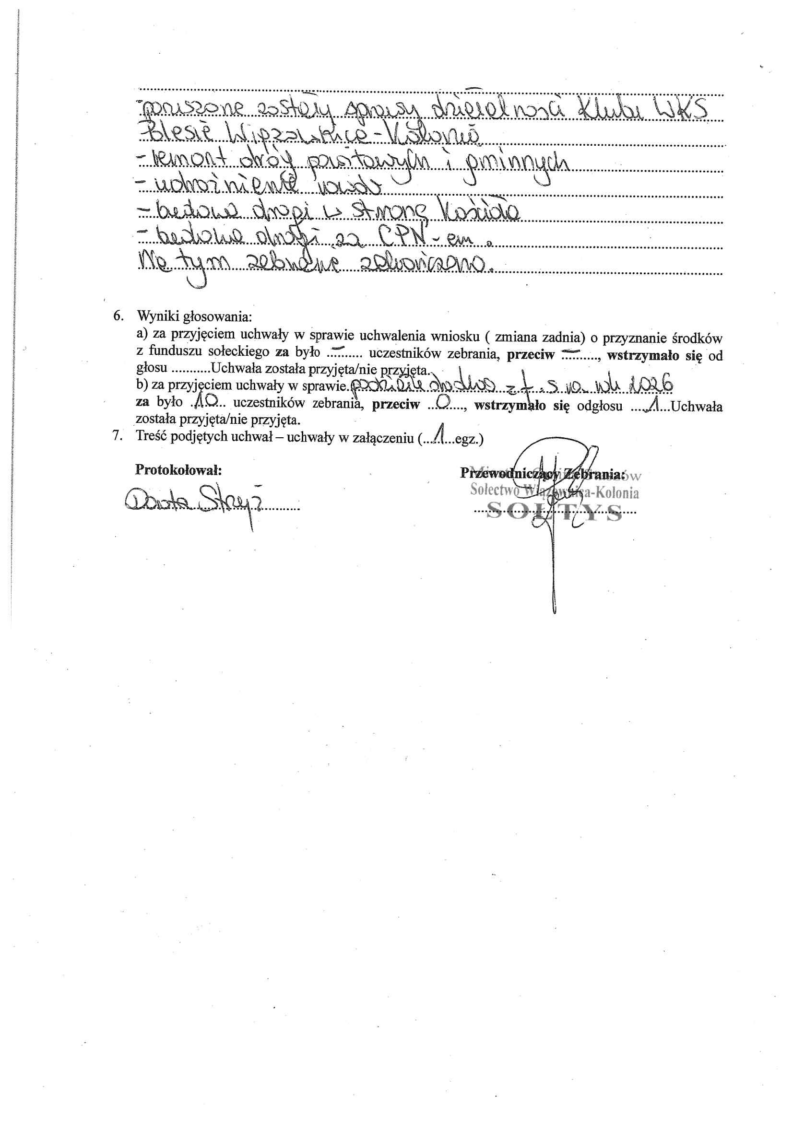 poruszone zostały sprawy działalności Klubu WKS
Polesie Wiązownica-Kolonia
- remont dróg powiatowych i gminnych
- udrożnienie rowów
- budowa drogi w stronę Kościoła
- budowa drogi za CPN-em.
Na tym zebranie zakończono.
6. Wyniki głosowania:
a) za przyjęciem uchwały w sprawie uchwalenia wniosku ( zmiana zadnia) o przyznanie środków
z funduszu sołeckiego za było ..—...... uczestników zebrania, przeciw ..—......, wstrzymało się od
głosu ...........Uchwała została przyjęta/nie przyjęta.
b) za przyjęciem uchwały w sprawie. podziału środków z f.s. na rok 2026
za było .10... uczestników zebrania, przeciw ..0...., wstrzymało się odgłosu ....1...Uchwała
została przyjęta/nie przyjęta.
7. Treść podjętych uchwał – uchwały w załączeniu (...1...egz.)
Protokołował:
Przewodniczący Zebrania:
Dorota Stręż
Sołectwo Wiązownica-Kolonia
SOŁTYS